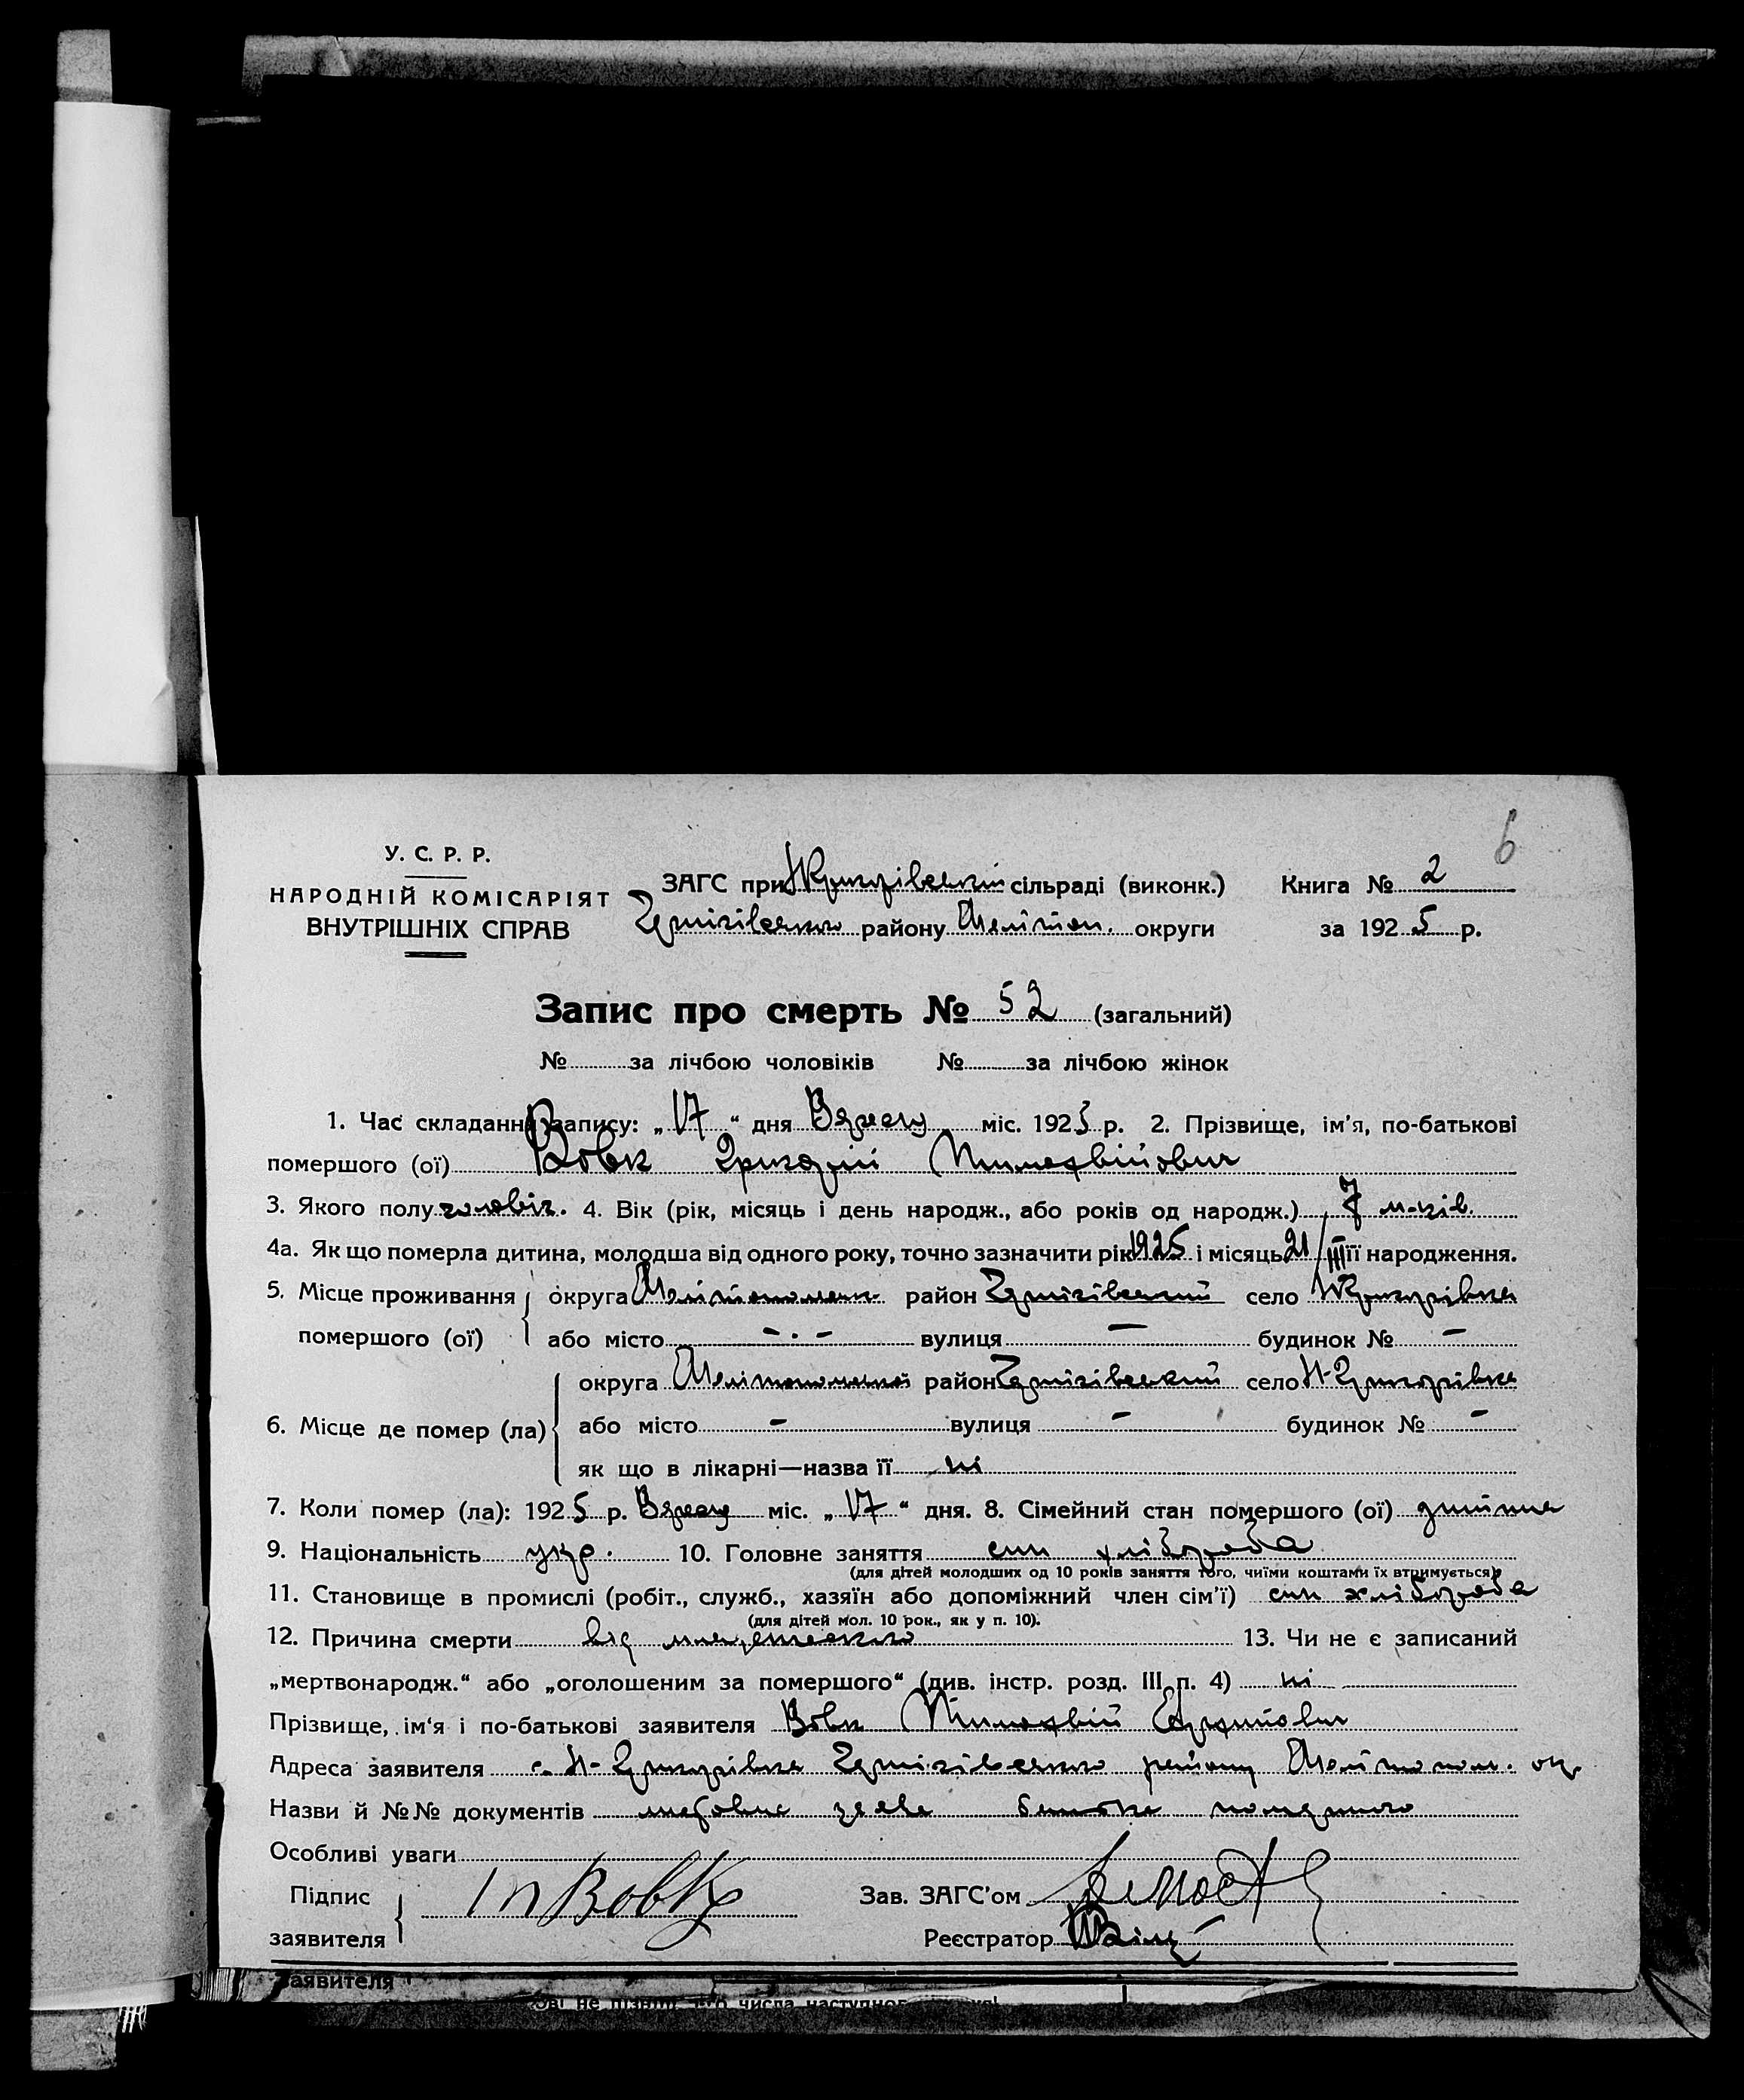 6
У. С. Р. Р.
НАРОДНІЙ КОМІСАРІЯТ
ВНУТРІШНІХ СПРАВ
ЗАГС при сільраді (виконк.) Книга № 2
району Меліт. округи за 1925 р.
Запис про смерть № 52 (загальний)
№ за лічбою чоловіків № за лічбою жінок
1. Час складання запису: „17“ дня Вересн міс. 1925 р. 2. Прізвище, ім'я, по-батькові
помершого (ої) Вовк Григорій Тимофвійович
3. Якого полу чоловіч. 4. Вік (рік, місяць і день народж., або років од народж.) 7 м-ців.
4а. Як що померла дитина, молодша від одного року, точно зазначити рік 1925 і місяць 21/III її народження.
5. Місце проживання округа район Чернігівський село Н-Григорівка
помершого (ої) або місто - . - вулиця — будинок № —
округа Мелітопольської район Чернігівський село Н-Григорівка
6. Місце де помер (ла) або місто - вулиця — будинок № —
як що в лікарні—назва її ні
7. Коли помер (ла): 1925 р. Вересн міс. „17“ дня. 8. Сімейний стан помершого (ої) дитина
9. Національність укр. 10. Головне заняття син хлібороба
(для дітей молодших од 10 років заняття того, чиїми коштами їх втримується)
11. Становище в промислі (робіт., служб., хазяїн або допоміжний член сім'ї) син хлібороба
(для дітей мол. 10 рок., як у п. 10).
12. Причина смерти від 13. Чи не є записаний
„мертвонародж.“ або „оголошеним за помершого“ (див. інстр. розд. III п. 4) ні
Прізвище, ім'я і по-батькові заявителя Вовк Тимофвій
Адреса заявителя с. Н-Григорівка Чернігівського району Мелітопол. окр.
Назви й №№ документів заява батька помершого
Особливі уваги
Підпис
заявителя Вовк
Зав. ЗАГС'ом
Реєстратор
заявителя